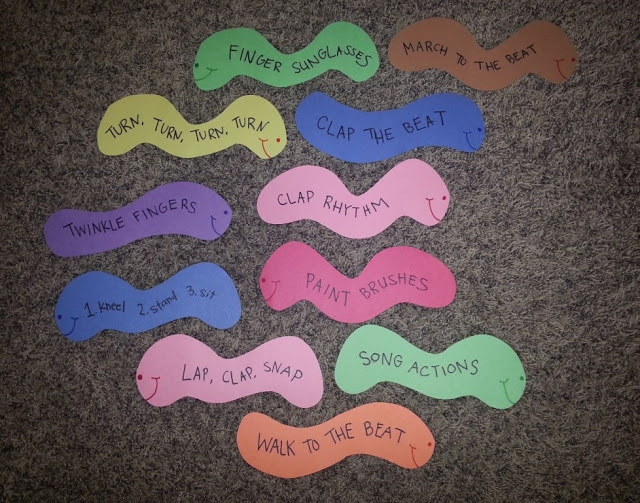 FINGER SUNGLASSES
MARCH TO THE BEAT
TURN, TURN, TURN, TURN
CLAP THE BEAT
TWINKLE FINGERS
CLAP RHYTHM
1. kneel 2. stand 3. sit
PAINT BRUSHES
LAP, CLAP, SNAP
SONG ACTIONS
WALK TO THE BEAT